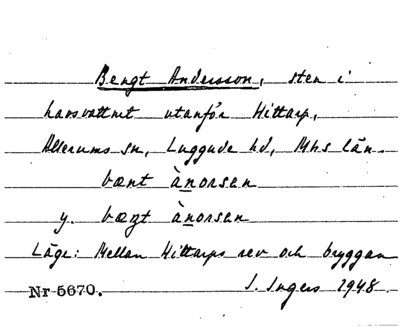 Bengt Andersson, sten i
havsvattnet utanför Hittarp,
Allerums sn, Luggude hd, Mhs län.
bænt ànorsen
y. bæŋt ànorsen
Läge: Mellan Hittarps rev och bryggan
Nr 5670. I. Ingers 1948.